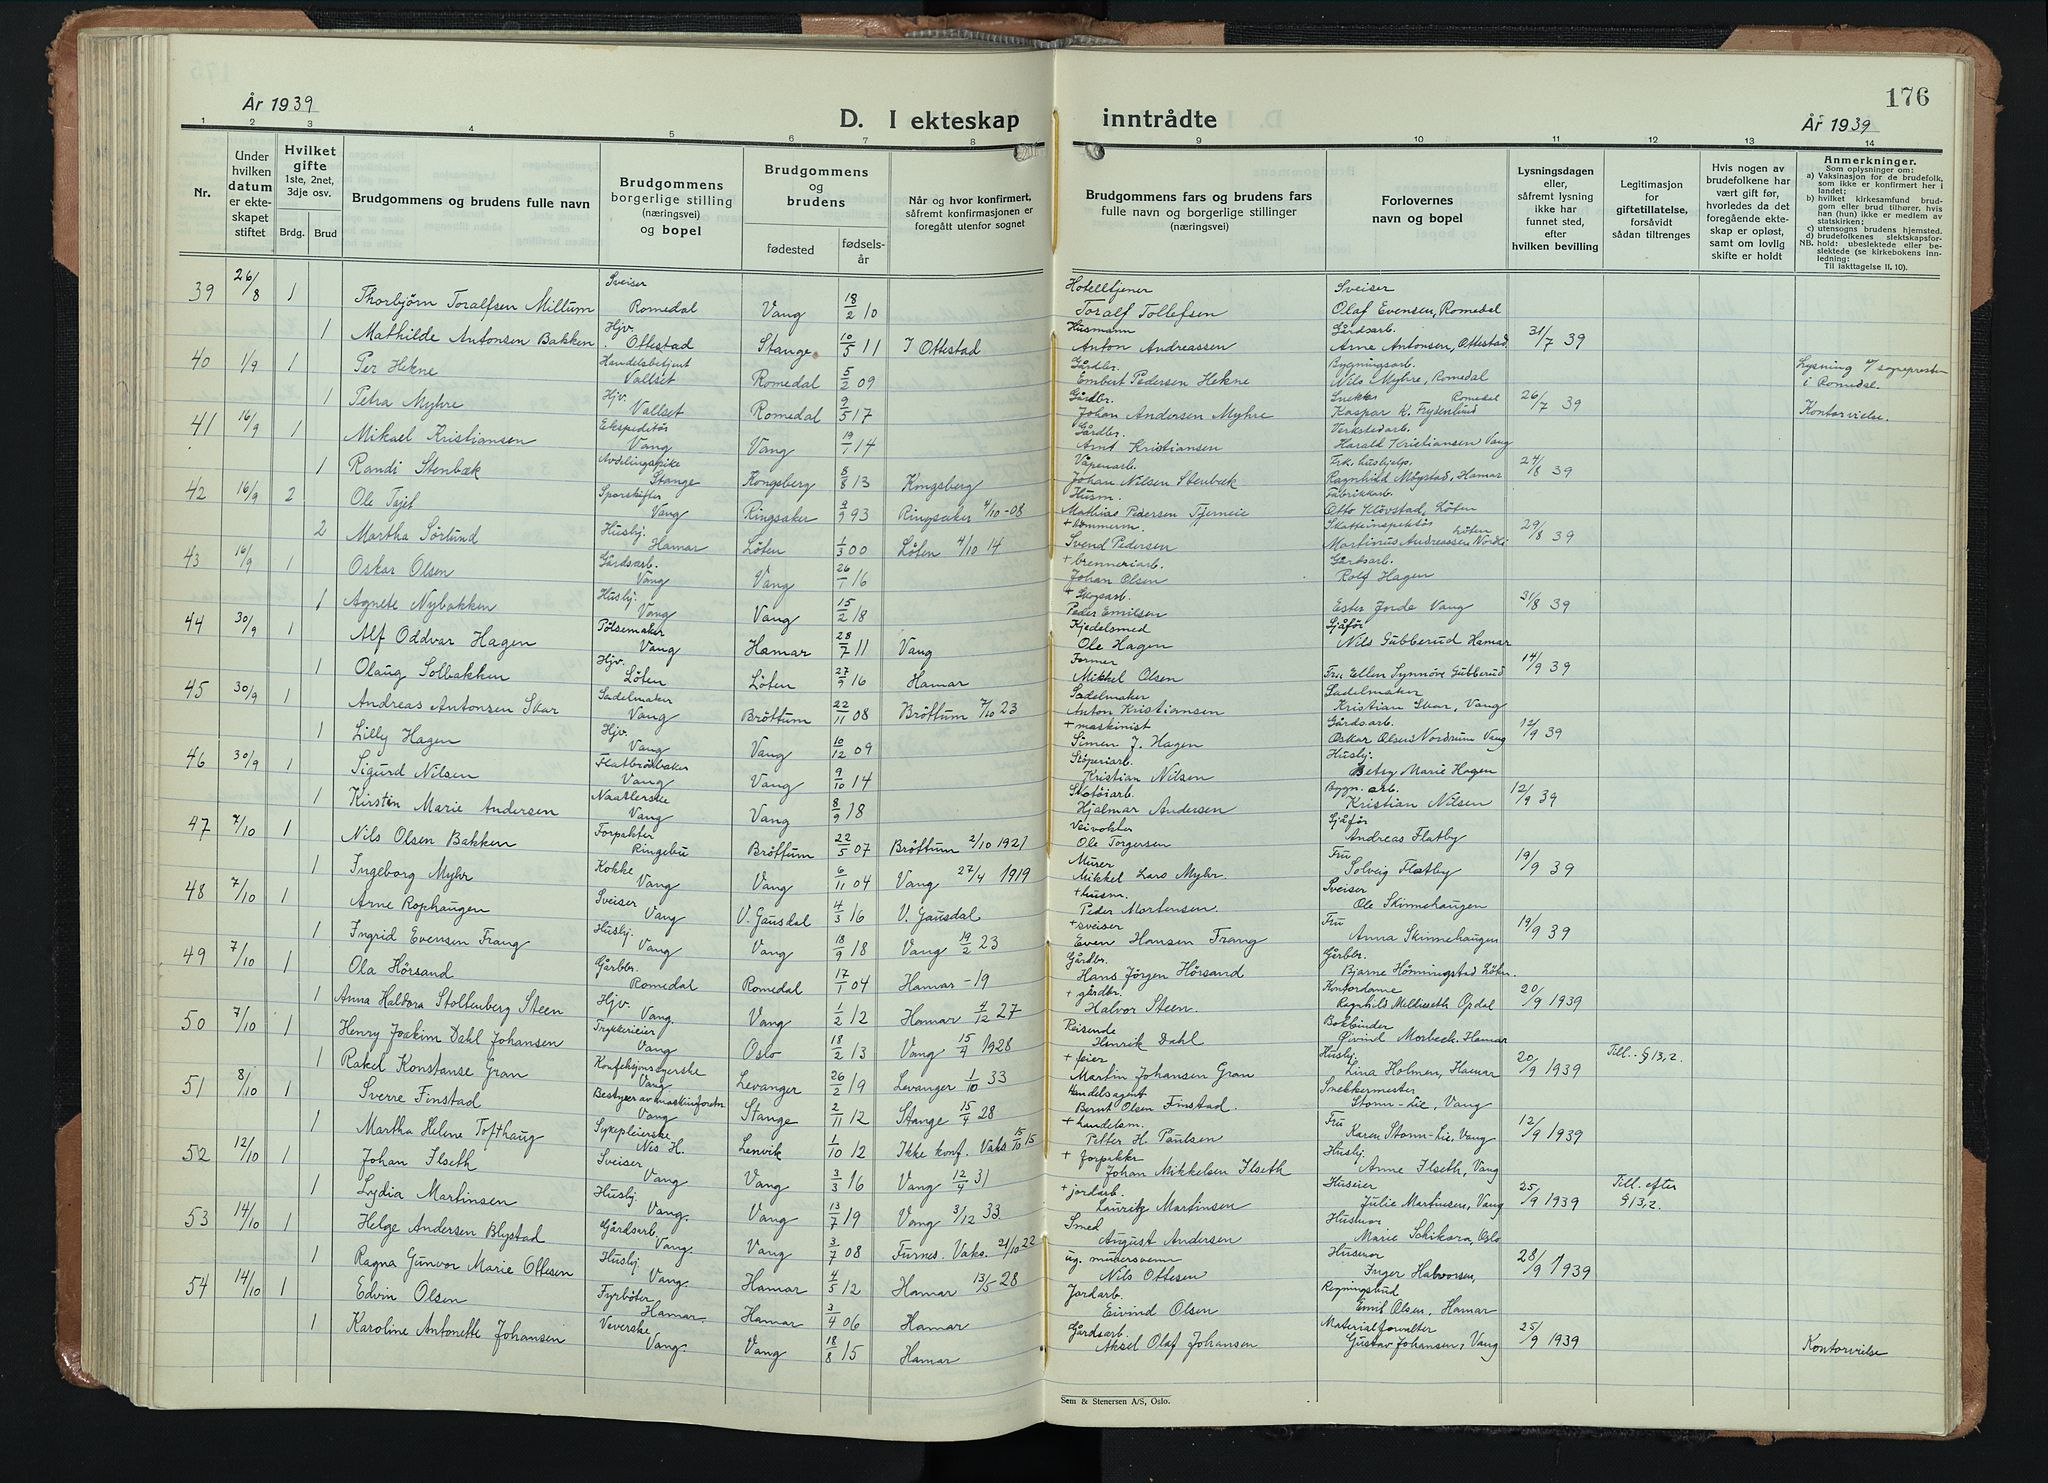 År 1939
D. I ekteskap inntrådte
176
År 1939
1 2 3 4 5 6 7 8 9 10 11 12 13 14
Nr.
Under hvilken datum er ekteskapet stiftet
Hvilket gifte 1ste, 2net, 3dje osv.
Brdg. Brud
Brudgommens og brudens fulle navn
Brudgommens borgerlige stilling (næringsvei) og bopel
Brudgommens og brudens
fødested fødselsår
Når og hvor konfirmert, såfremt konfirmasjonen er foregått utenfor sognet
Brudgommens fars og brudens fars fulle navn og borgerlige stillinger (næringsvei)
Forlovernes navn og bopel
Lysningsdagen eller, såfremt lysning ikke har funnet sted, efter hvilken bevilling
Legitimasjon for giftetillatelse, forsåvidt sådan tiltrenges
Hvis nogen av brudefolkene har vært gift før, hvorledes da det foregående ekteskap er opløst, samt om lovlig skifte er holdt
Anmerkninger.
Som oplysning om:
a) Vaksinasjon for de brudefolk, som ikke er konfirmert her i landet;
b) hvilket kirkesamfund brudgom eller brud tilhører, hvis han (hun) ikke er medlem av statskirken;
c) utensogns brudens hjemsted.
d) brudefolkenes slektskapsforhold: ubeslektede eller beslektede (se kirkebokens innledning:
NB. Til iakttagelse II. 10).
39 26/8 1 Thorbjörn Toralfsen Millum Sveiser Romedal Vang 18/2 10 Hotelltjener Toralf Tollefsen Sveiser Olaf Evensen, Romedal
1 Mathilde Antonsen Bakken Hjv. Ottestad Stange 10/5 11 I Ottestad Husmann Anton Andreassen Gårdsarb. Arne Antonsen, Ottestad 31/7 39
40 1/9 1 Per Hekne Handelsbetjent Vallset Romedal 5/2 09 Gårdbr. Embert Pedersen Hekne Bygningsarb. Nils Myhre, Romedal Lysning v/ sognepresten i Romedal.
1 Petra Myhre Hjv. Vallset Romedal 9/5 17 Gårdbr. Johan Andersen Myhre Snekker Romedal Kaspar K. Frydenlund 26/7 39 Kontorvielse.
41 16/9 1 Mikael Kristiansen Ekspeditör Vang Vang 19/1 14 Gårdbr. Arnt Kristiansen Verkstedarb. Harald Kristiansen Vang
1 Randi Stenbæk Avdelingspike Stange Kongsberg 8/8 13 Kongsberg Våpenarb. Johan Nilsen Stenbæk Frk. husbjelp. Ragnhild Mögstad, Hamar 24/8 39
42 16/9 2 Ole Tajet Sporskifter Vang Ringsaker 3/9 93 Ringsaker 4/10-08 Husm. Mathias Pedersen Tjerneie Fabrikkarb. Otto Klövstad, Löten
2 Martha Sörlund Husbj. Hamar Löten 1/3 00 Löten 4/10 14 + tömmerm. Svend Pedersen Skatteinspektör Löten Martinus Andreassen Nordli 29/8 39
43 16/9 1 Oskar Olsen Gårdsarb. Vang Vang 26/1 16 + brenneriarb. Johan Olsen Gårdsarb. Rolf Hagen
1 Agnete Nybakken Husbj. Vang Vang 15/2 18 + Skogsarb. Peder Emilsen Ester Jorde Vang 31/8 39
44 30/9 1 Alf Oddvar Hagen Pölsemaker Vang Hamar 28/7 11 Vang Kjedelsmed Ole Hagen Sjåför Nils Gubberud Hamar
1 Olaug Solbakken Hjv. Löten Löten 27/9 16 Hamar Former Mikkel Olsen Fru Ellen Synnöve Gubberud 14/9 39
45 30/9 1 Andreas Antonsen Skar Sadelmaker Vang Bröttum 22/11 08 Bröttum 7/10 23 Sadelmaker Anton Kristiansen Sadelmaker Kristian Skar, Vang
1 Lilly Hagen Hjv. Vang Vang 10/12 09 + maskinist Simen J. Hagen Gårdsarb. Oskar Olsen Nordrum Vang 12/9 39
46 30/9 1 Sigurd Nilsen Flatbrödbaker Vang Vang 9/10 14 Stöperiarb. Kristian Nilsen Husbj. Betsy Marie Hagen
1 Kirsten Marie Andersen Naatlerske Vang Vang 8/9 18 Skotöiarb. Hjalmar Andersen Bygn. arb. Kristian Nilsen 12/9 39
47 7/10 1 Nils Olsen Bakken Forpakter Ringebu Bröttum 22/5 07 Bröttum 2/10 1921 Veivokter Ole Torgersen Sjåför Andreas Flatby
1 Ingeborg Myhr Kokke Vang Vang 6/11 04 Vang 27/4 1919 Murer Mikkel Lars Myhr. Fru Solveig Flatby 19/9 39
48 7/10 1 Arne Rophaugen Sveiser Vang V. Gausdal 4/3 16 V. Gausdal + husm. Peder Mortensen. Sveiser Ole Skinnehaugen
1 Ingrid Evensen Frang Husbj. Vang Vang 18/9 18 Vang 19/2 23 + sveiser Even Hansen Frang Fru Anna Skinnehaugen 19/9 39
49 7/10 1 Ola Hörsand Gårbbr. Romedal Romedal 17/1 04 Hamar -19 Gårdbr. Hans Jörgen Hörsand Gårbbr. Bjarne Hönningstad Löten.
1 Anna Haldora Stoltenberg Steen Hjv. Vang. Vang 1/2 12 Hamar 4/12 27 + gårdbr. Halvor Steen. Kontordame Ragnhild Opdal 20/9 1939
50 7/10 1 Henry Joakim Dahl Johansen Trykkerieier Vang Oslo 18/2 13 Vang 15/4 1928 Reisende Henrik Dahl Bokbinder Øivind Morbeck. Hamar
1 Rakel Konstanse Gran Konfeksjonssyerske Vang Levanger 26/2 19 Levanger 1/10 33 + feier Martin Johansen Gran Husbj. Lina Holmen, Hamar 20/9 1939 Till. § 13,2.
51 8/10 1 Sverre Finstad Bestyrer av maskinforetn. Vang Stange 2/11 12 Stange 15/4 28 Handelsagent Bernt Olsen Finstad. Snekkermester Stomn-Lie, Vang
1 Martha Helene Tofthaug Sykepleierske Nes H. Lenvik 1/10 12 Ikke konf. Vaks 15/10 15 + handelsm. Petter H. Paulsen Fru Karen Stomn-Lie, Vang 12/9 1939
52 12/10 1 Johan Ilseth Sveiser Vang Vang 3/3 16 Vang 12/4 31 + forpakter Johan Mikkelsen Ilseth Husbj. Arne Ilseth, Vang
1 Lydia Martinsen Husbj. Vang. Vang 13/7 19 Vang 3/12 33 + jordarb. Lauritz Martinsen Huseier Julie Martinsen, Vang 25/9 1939 Till. efter § 13,2.
53 14/10 1 Helge Andersen Blystad Gårdsarb. Vang. Vang 3/7 08 Furnes. Vaks. 21/10 22 Smed August Andersen Husmor Marie Schikora, Oslo
1 Ragna Gunvor Marie Ottesen Husbj. Vang. Hamar 4/5 12 Hamar 13/5 28 ug. murersvenn Nils Ottesen Husmor Inger Halvorsen, 28/9 1939
54 14/10 1 Edvin Olsen Fyrböter Hamar. Hamar 3/4 06 Hamar Jordarb. Eivind Olsen Regningsbud Emil Olsen, Hamar
1 Karoline Antonette Johansen Veverske Vang. Vang 18/8 15 Hamar Gårdsarb. Aksel Olaf Johansen Materialforvalter Gustav Johansen, Vang 25/9 1939 Kontorvielse
Sem & Stenersen A/S, Oslo.